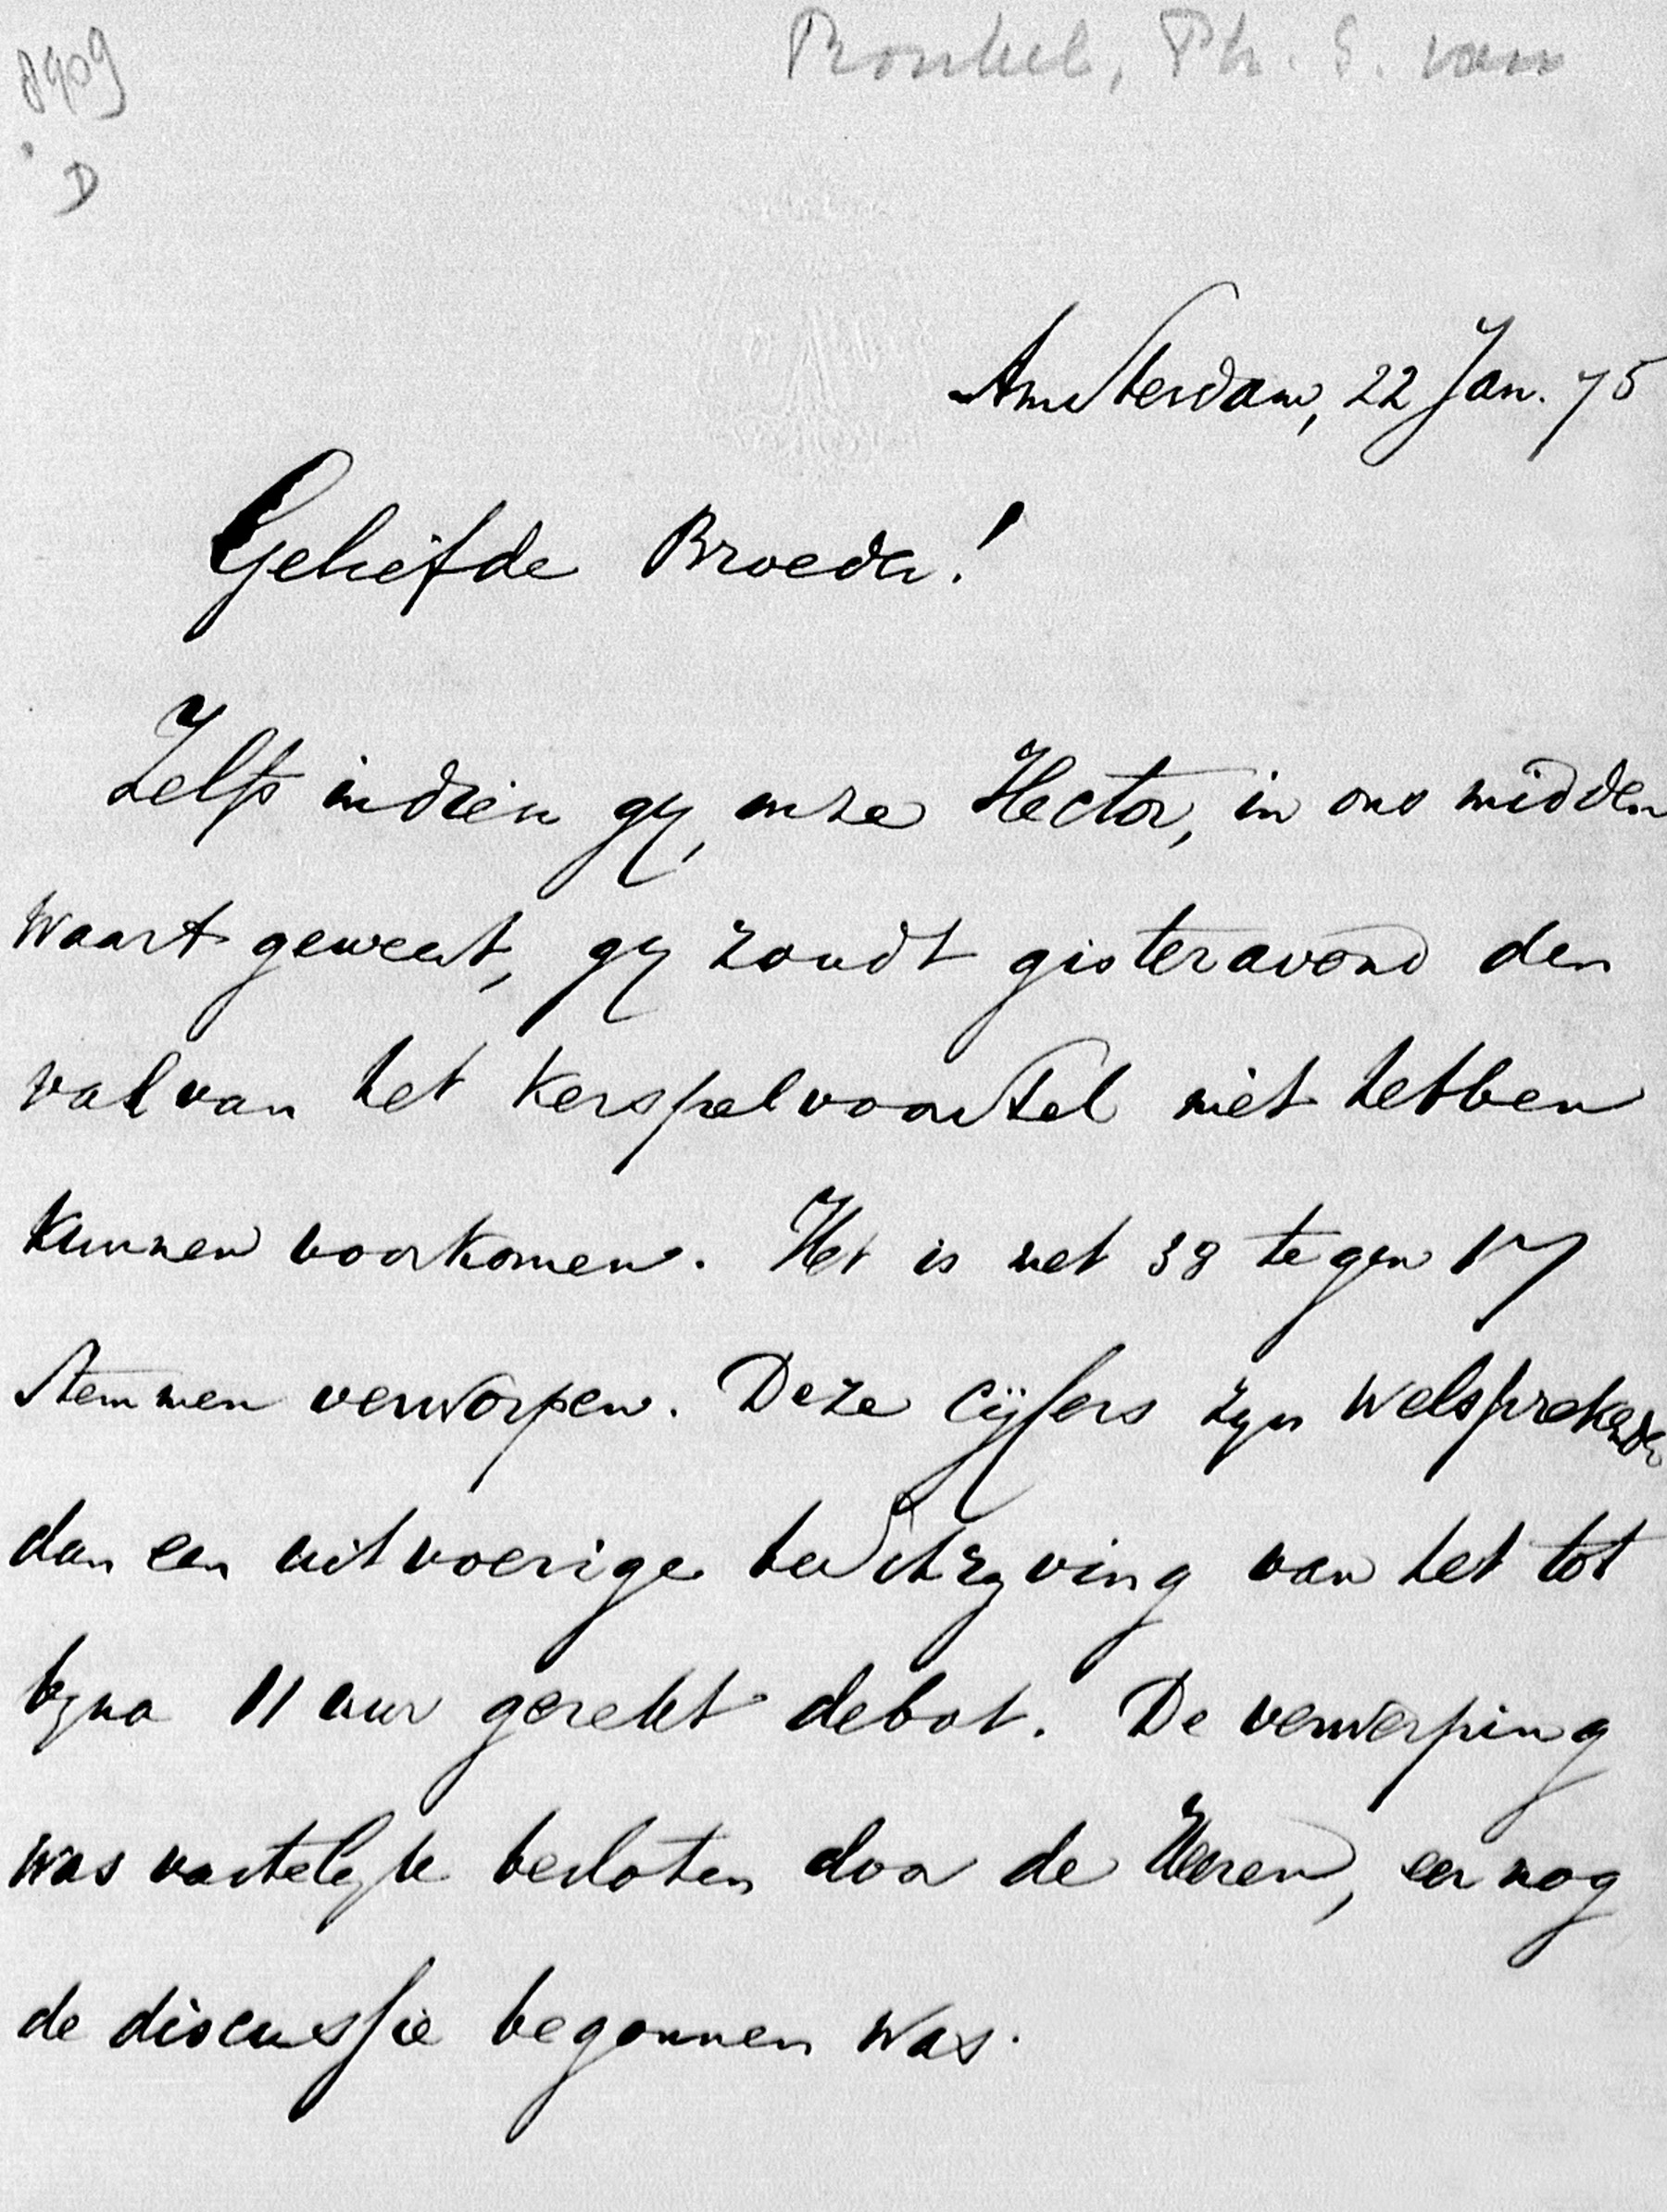 8909
D
Ronkel, Ph. S. van
Amsterdam, 22 Jan. 75
Geliefde Broeder!
Zelfs indien gy, onze Hector, in ons midden
waart geweest, gy zoudt gisteravond den
val van het Kerspelvoorstel niet hebben
kunnen voorkomen. Het is met 38 tegen 17
stemmen verworpen. Deze cijfers zyn welsprekender
dan een uitvoerige beschryving van het tot
byna 11 uur gerekt debat. De verwerping
was vastelyk besloten door de Heeren, eer nog
de discussie begonnen was.